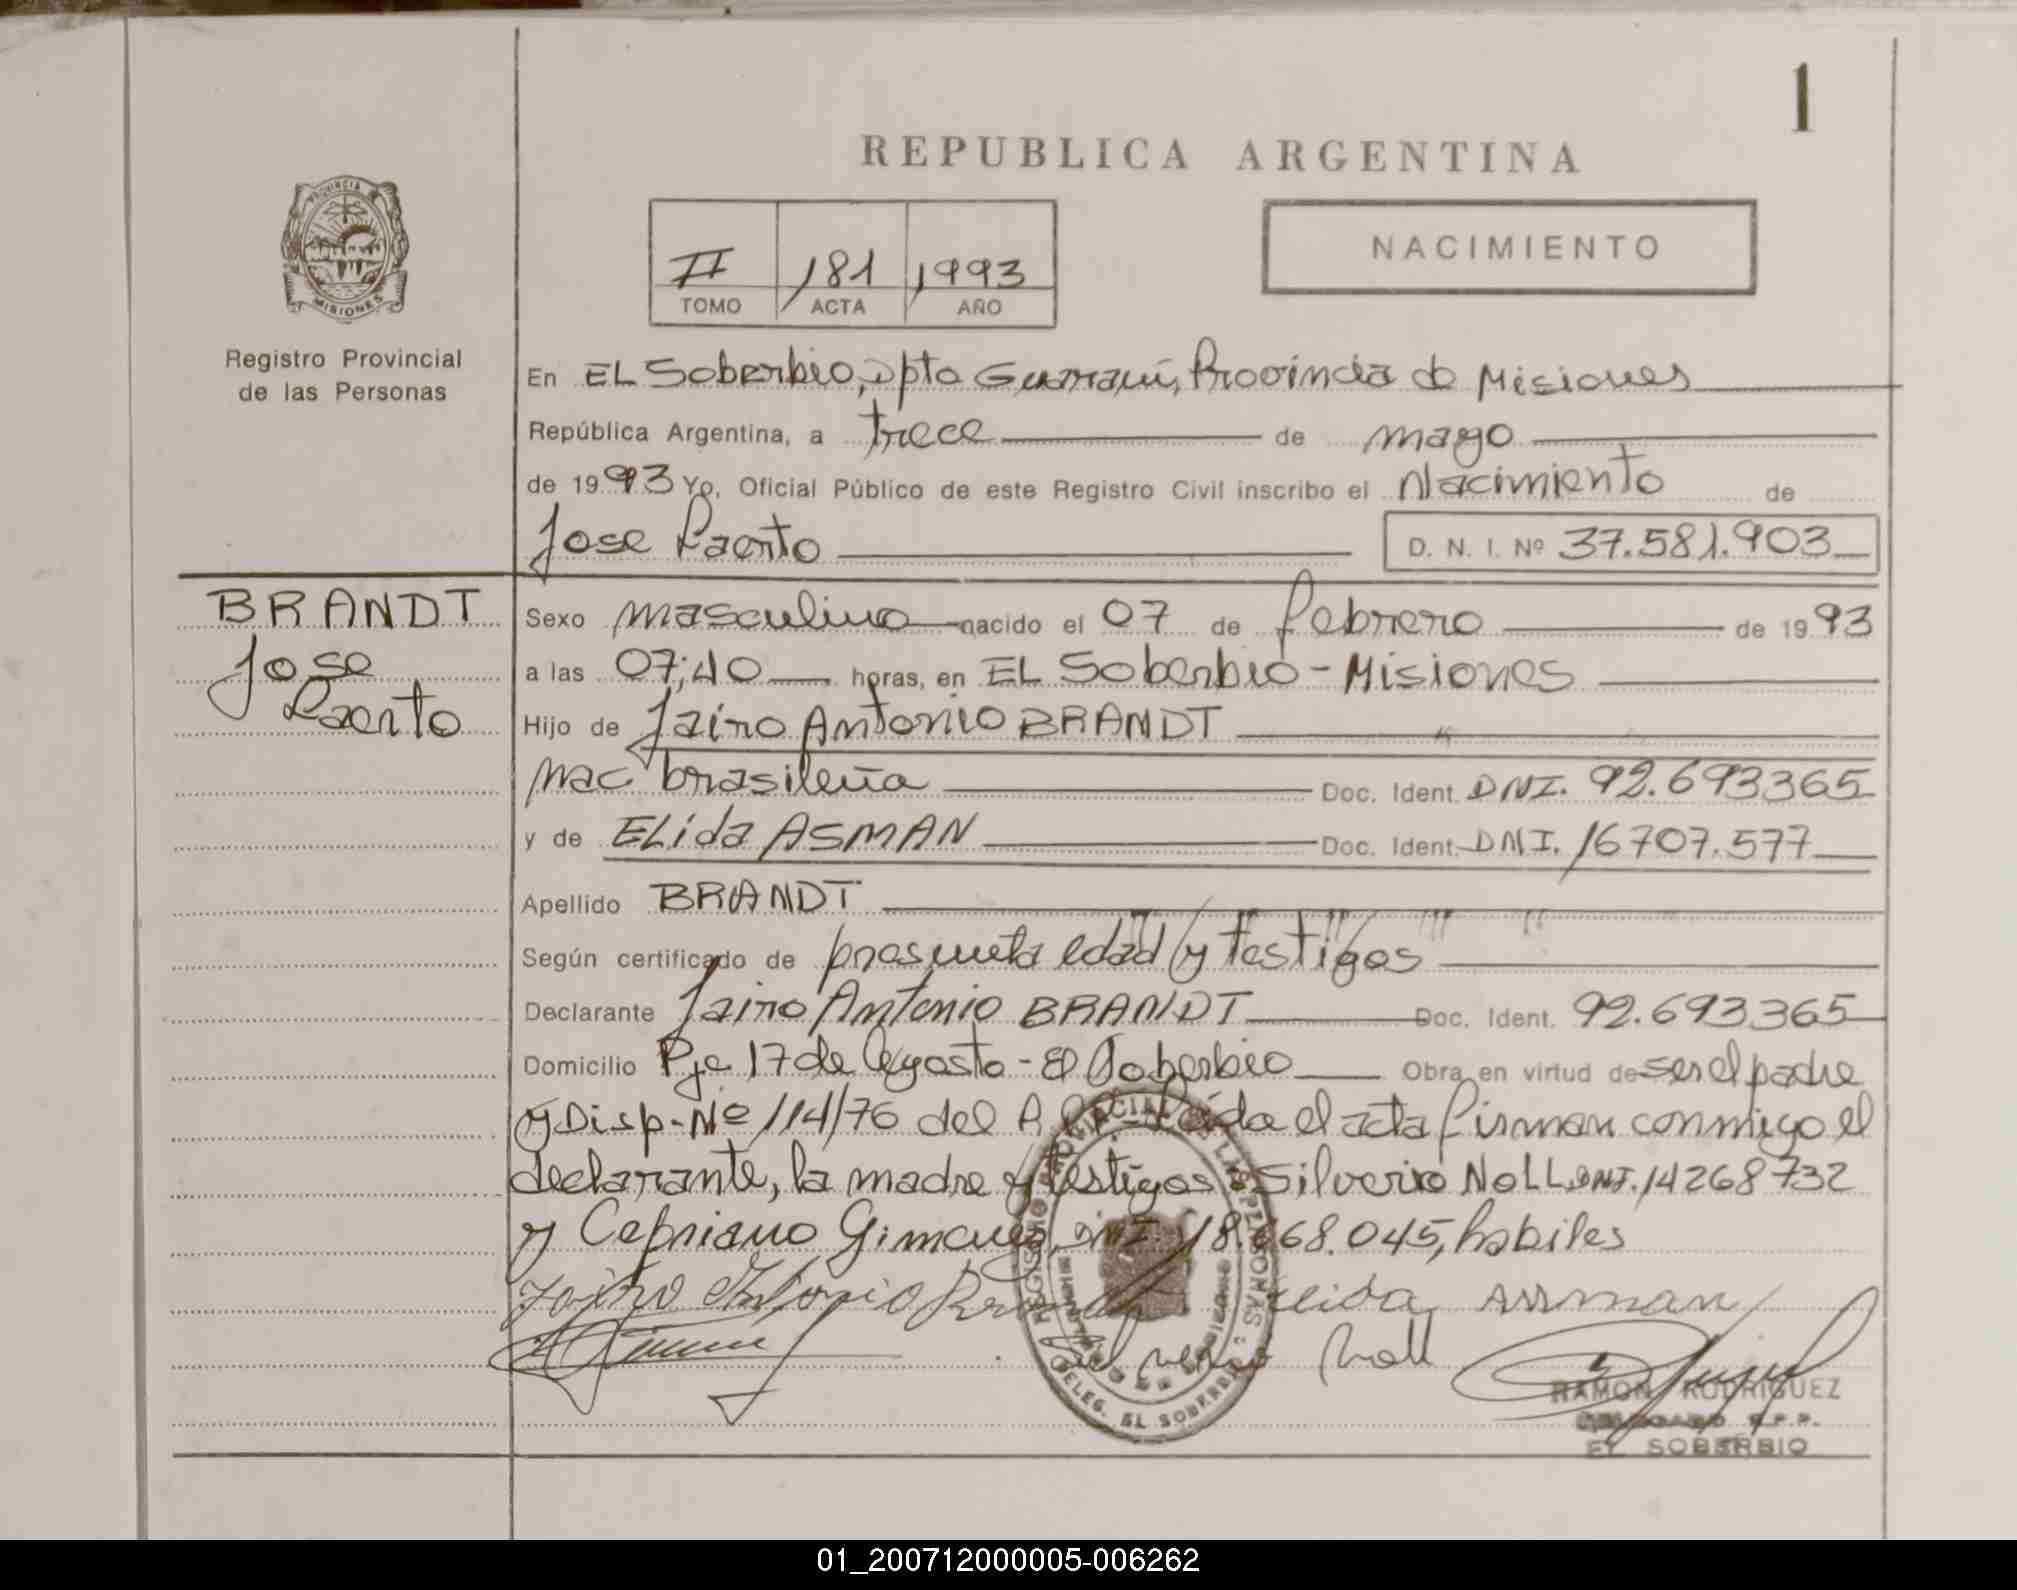 1
REPUBLICA ARGENTINA
PROVINCIA
MISIONES
II 181 1993
TOMO ACTA AÑO
NACIMIENTO
Registro Provincial
de las Personas
En EL Soberbio, Dpto Guarani, Provincia de Misiones
República Argentina, a trece de mayo
de 1993 Yo, Oficial Público de este Registro Civil inscribo el Nacimiento de
Jose Laerto D. N. I. Nº 37.581.903
BRANDT
Jose
Laerto
Sexo masculino nacido el 07 de febrero de 1993
a las 07;40 horas, en EL Soberbio - Misiones
Hijo de Jairo Antonio BRANDT
Nac brasileña Doc. Ident. DNI. 92.693365
y de ELida ASMAN Doc. Ident. DNI. 16707.577
Apellido BRANDT
Según certificado de presunta edad y testigos
Declarante Jairo Antonio BRANDT Doc. Ident. 92.693.365
Domicilio Pje 17 de Agosto - El Soberbio Obra en virtud de ser el padre
y Disp. Nº 114/76 del R.P.P - Leida el acta firman conmigo el
declarante, la madre y testigos Silverio NoLL DNI. 14268732
y Cepriano Gimenez, DNI. 18.668.045, habiles
Jairo Antonio Brandt Elida Assman
Silverio Noll
RAMON RODRIGUEZ
DELEGADO R.P.P.
EL SOBERBIO
REGISTRO PROVINCIAL DE LAS PERSONAS
DELEG. EL SOBERBIO
01_200712000005-006262